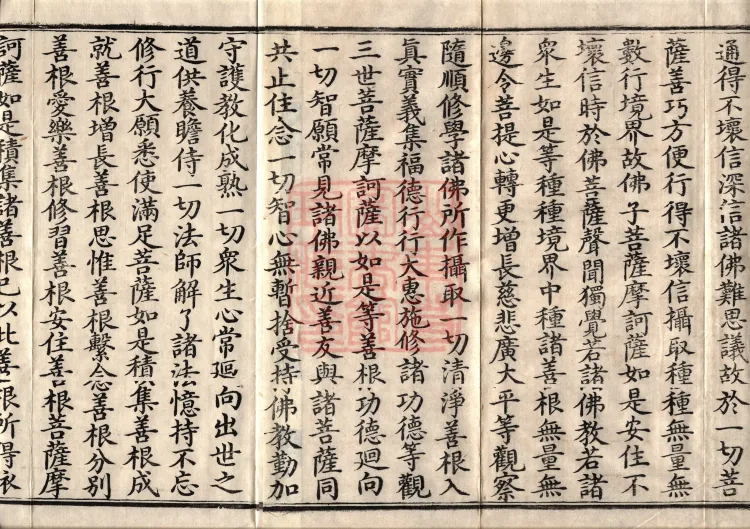 通得不壞信深信諸佛難思議故於一切菩
薩善巧方便行得不壞信攝取種種無量無
數行境界故佛子菩薩摩訶薩如是安住不
壞信時於佛菩薩聲聞獨覺若諸佛教若諸
眾生如是等種種境界中種諸善根無量無
邊令菩提心轉更增長慈悲廣大平等觀察
隨順修學諸佛所作攝取一切清淨善根入
真實義集福德行行大惠施修諸功德等觀
三世菩薩摩訶薩以如是等善根功德迴向
一切智願常見諸佛親近善友與諸菩薩同
共止住念一切智心無暫捨受持佛教勤加
守護教化成熟一切眾生心常迴向出世之
道供養瞻侍一切法師解了諸法憶持不忘
修行大願悉使滿足菩薩如是積集善根成
就善根增長善根思惟善根繫念善根分別
善根愛樂善根修習善根安住善根菩薩摩
訶薩如是積集諸善根已以此善根所得依